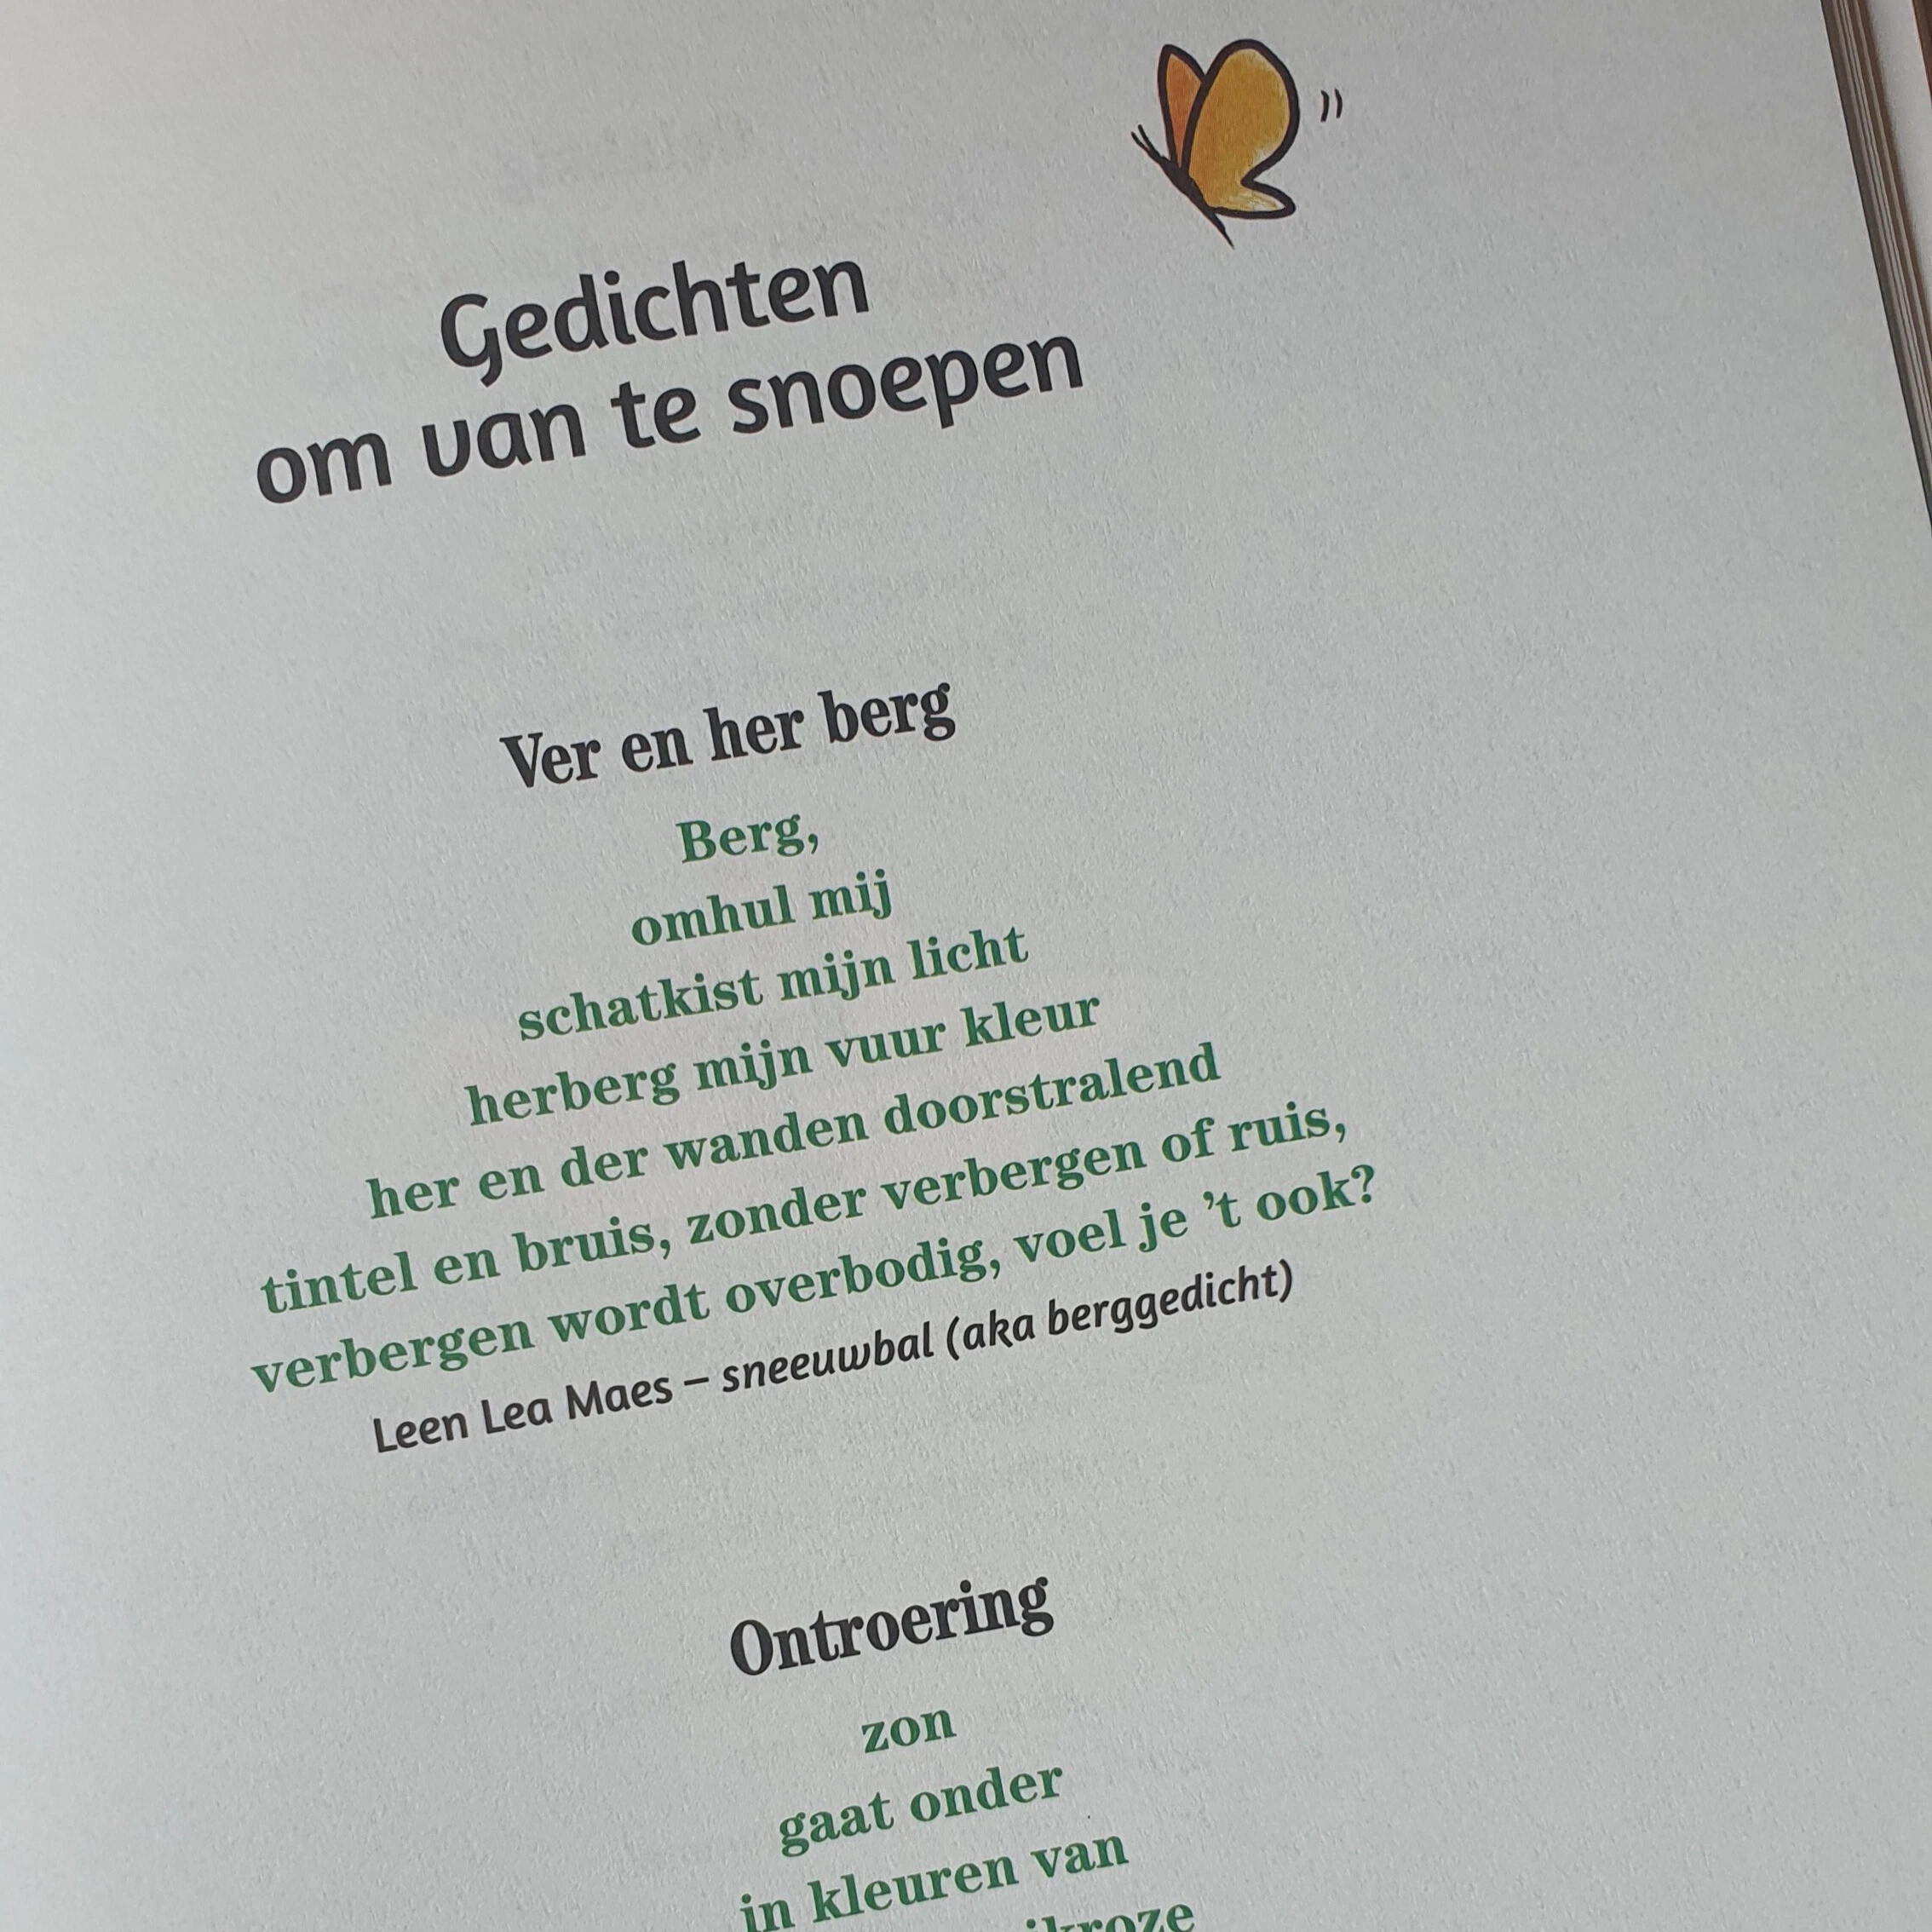 Gedichten
om van te snoepen
Ver en her berg
Berg,
omhul mij
schatkist mijn licht
herberg mijn vuur kleur
her en der wanden doorstralend
tintel en bruis, zonder verbergen of ruis,
verbergen wordt overbodig, voel je ’t ook?
Leen Lea Maes – sneeuwbal (aka berggedicht)
Ontroering
zon
gaat onder
in kleuren van